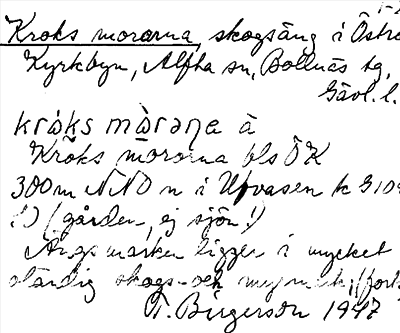 Kroks morarna, skogsäng i Östra
Kyrkbyn, Alfta sn, Bollnäs tg,
Gävl. l.
Kroks morarna bls ÖK
300 m NNO n i Ufvasen k
(gården, ej sjön!)
Ängsmarken ligger i mycket
skogs- och
T. Birgerson 1947